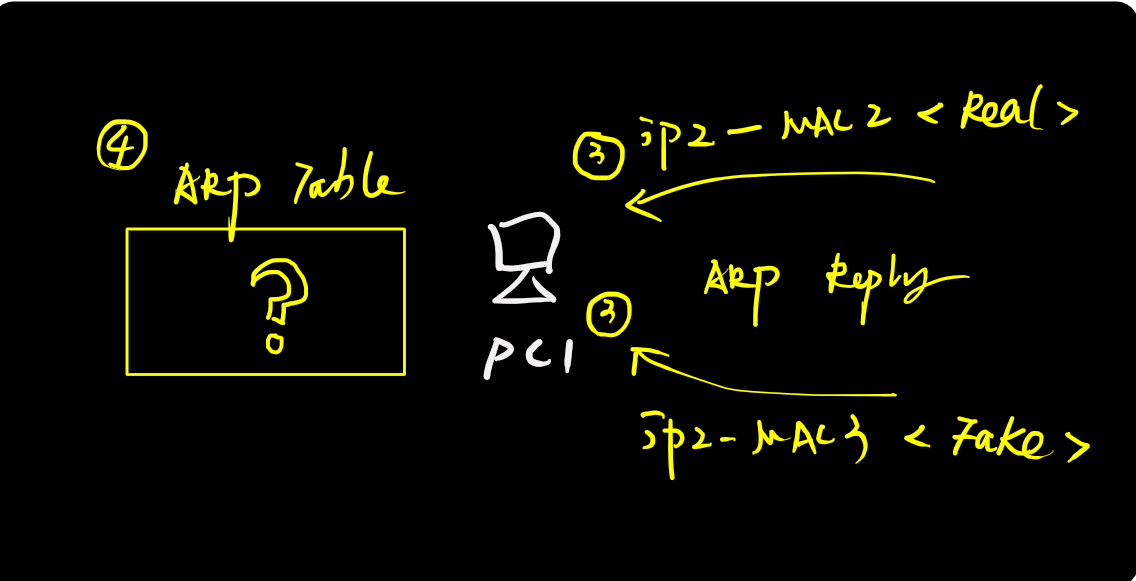 ④
ARP Table
?
PC1
③ IP2 - MAC2 < Real >
ARP Reply
③
IP2 - MAC3 < Fake >